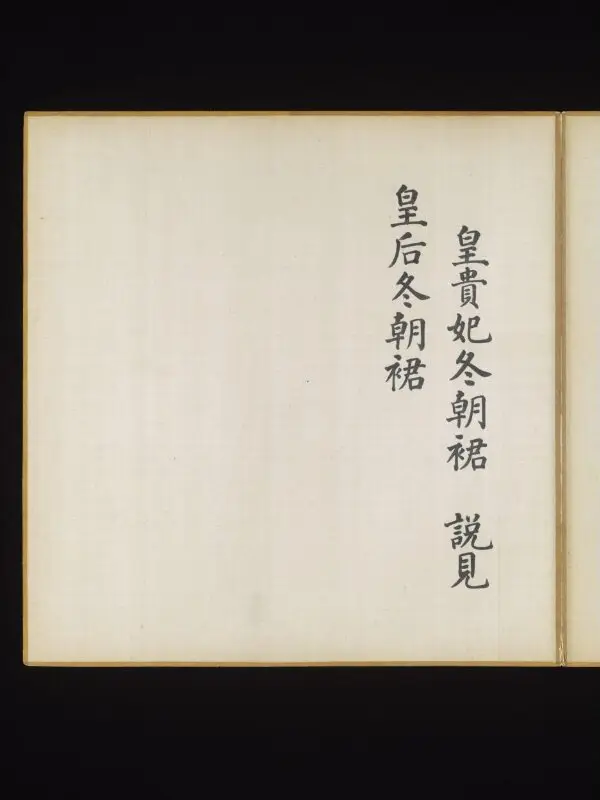 皇貴妃冬朝裙　說見
皇后冬朝裙